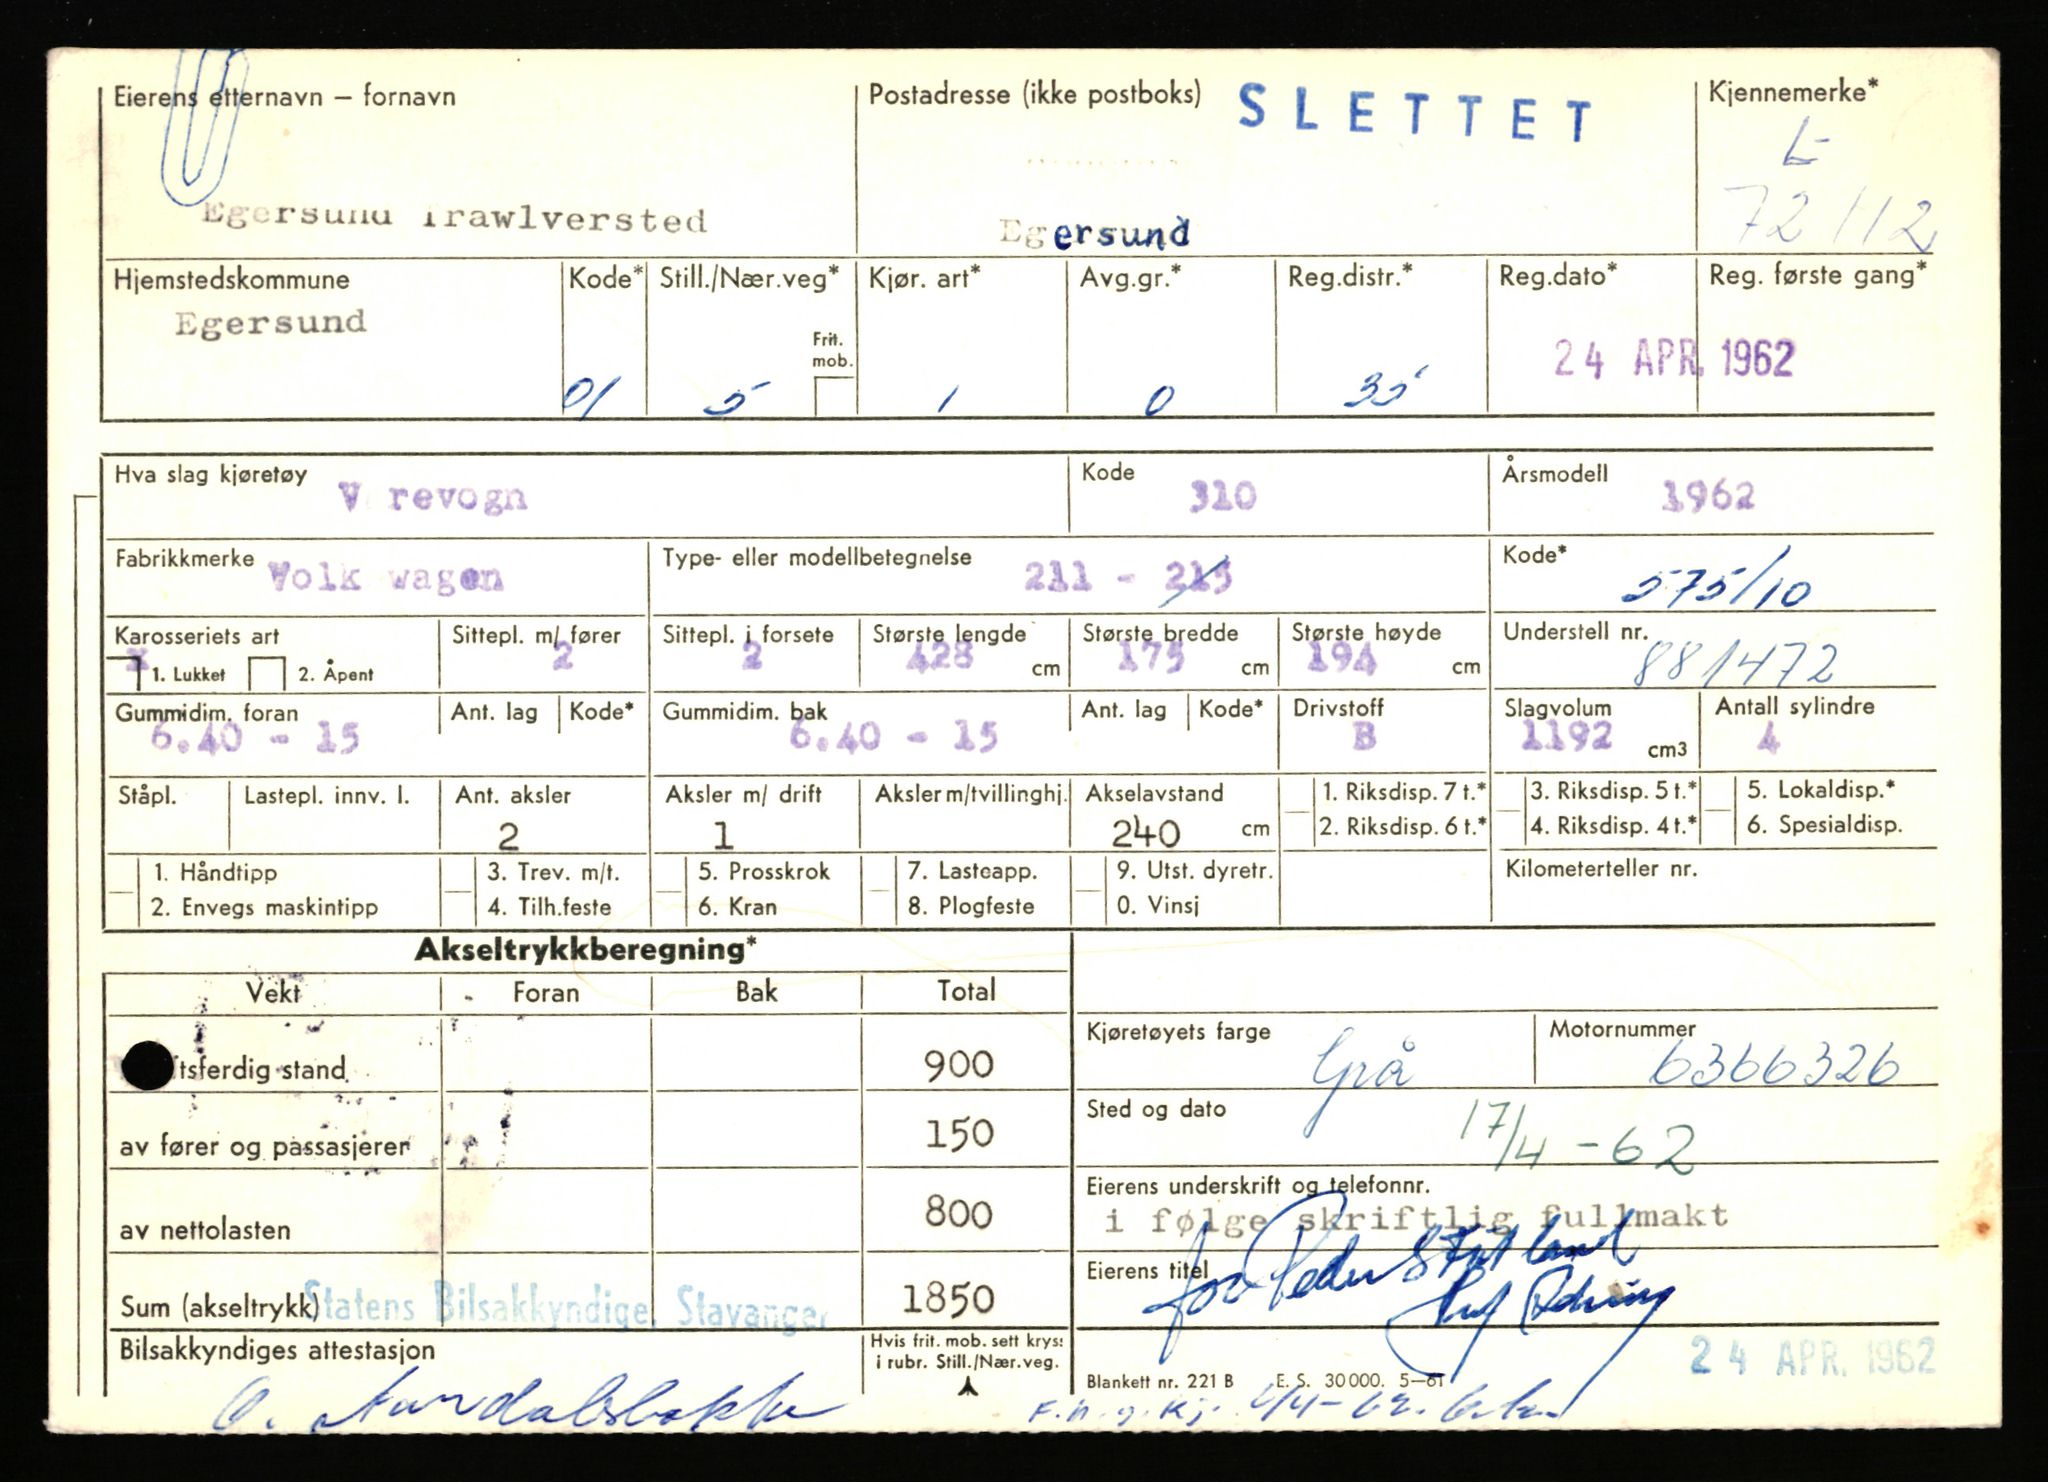 Eierens etternavn – fornavn
Postadresse (ikke postboks) SLETTET
Kjennemerke*
L
72112
Egersund Trawlversted
Egersund
Hjemstedskommune
Kode* Still./Nær.veg* Kjør. art* Avg.gr.* Reg.distr.* Reg.dato* Reg. første gang*
Egersund
Frit.
mob.
24 APR. 1962
01 5 1 0 35
Hva slag kjøretøy V revogn
Kode 310
Årsmodell 1962
Fabrikkmerke Volk wagen
Type- eller modellbetegnelse 211 - 215
Kode* 575/10
Karosseriets art Sittepl. m/ fører Sittepl. i forsete Største lengde Største bredde Største høyde Understell nr.
x 1. Lukket 2. Åpent 2 2 428 cm 175 cm 194 cm 881472
Gummidim. foran Ant. lag Kode* Gummidim. bak Ant. lag Kode* Drivstoff Slagvolum Antall sylindre
6.40 - 15 6.40 - 15 B 1192 cm3 4
Ståpl. Lastepl. innv. l. Ant. aksler Aksler m/ drift Aksler m/tvillinghj. Akselavstand 1. Riksdisp. 7 t.* 3. Riksdisp. 5 t.* 5. Lokaldisp.*
2 1 240 cm 2. Riksdisp. 6 t.* 4. Riksdisp. 4 t.* 6. Spesialdisp.
1. Håndtipp 3. Trev. m/t. 5. Prosskrok 7. Lasteapp. 9. Utst. dyretr. Kilometerteller nr.
2. Envegs maskintipp 4. Tilh.feste 6. Kran 8. Plogfeste 0. Vinsj
Akseltrykkberegning*
Vekt Foran Bak Total
Kjøretøyets farge Grå
Motornummer 6366326
tsferdig stand 900
Sted og dato 17/4-62
av fører og passasjerer 150
Eierens underskrift og telefonnr.
i følge skriftlig fullmakt
av nettolasten 800
for Peder
Eierens titel
Sum (akseltrykk) 1850
Statens Bilsakkyndige, Stavanger
Bilsakkyndiges attestasjon
Hvis frit. mob. sett kryss
i rubr. Still./Nær.veg.
24 APR. 1962
Blankett nr. 221 B E. S. 30000. 5–61